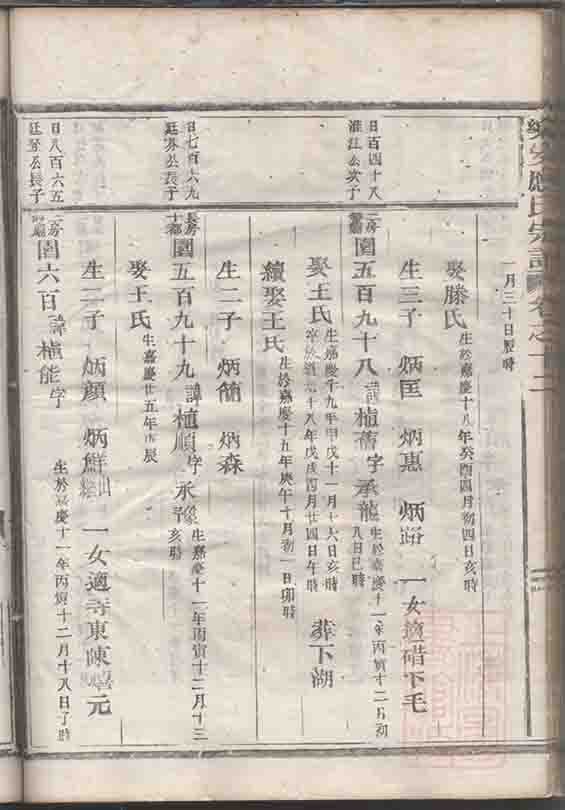 應氏宗譜 卷之十二
一月三十日㞐時
娶滕氏 生於嘉慶十八年癸酉四月初四日亥時
生三子 炳匡 炳惠 炳 一女適碏下毛
日百四十八
淮江公次子
二房
圓五百九十八 諱植 字承龍 生於嘉慶十一年丙寅十二月初
八日巳時
娶王氏 生嘉慶十九年甲戌十一月十六日亥時
卒於道光十八年戊戌四月廿四日午時 葬下湖
續娶王氏 生於嘉慶十五年庚午十月初一日卯時
生二子 炳簡 炳森
日七百六九
廷芬公長子
長房
十都
圓五百九十九 諱植順 字承 生嘉慶十一年丙寅十二月十三
亥時
娶王氏 生嘉慶廿五年庚辰
生二子 炳顏 炳鮮出繼 一女適寺東陳元
日八百六五
廷公長子
二房
圓六百 諱植能 字 生於嘉慶十一年丙寅十二月十八日丁時